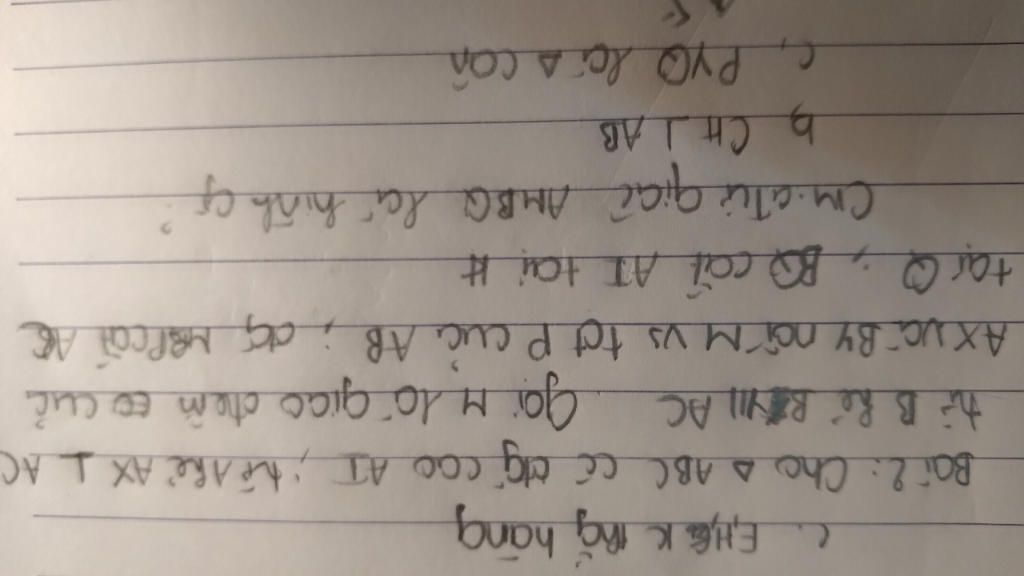 c. E,H,K thg hàng
Bài 2: Cho Δ ABC có đg cao AI, từ A kẻ AX ⊥ AC
từ B kẻ BY // AC Gọi M là giao điểm của
AX và BY nối M vs tđ P của AB, đg MP cắt AC
tại Q, BQ cắt AI tại H
CM. a, Tứ giác AMBQ là hình gì?
b, CH ⊥ AB
c, PYQ là Δ cân